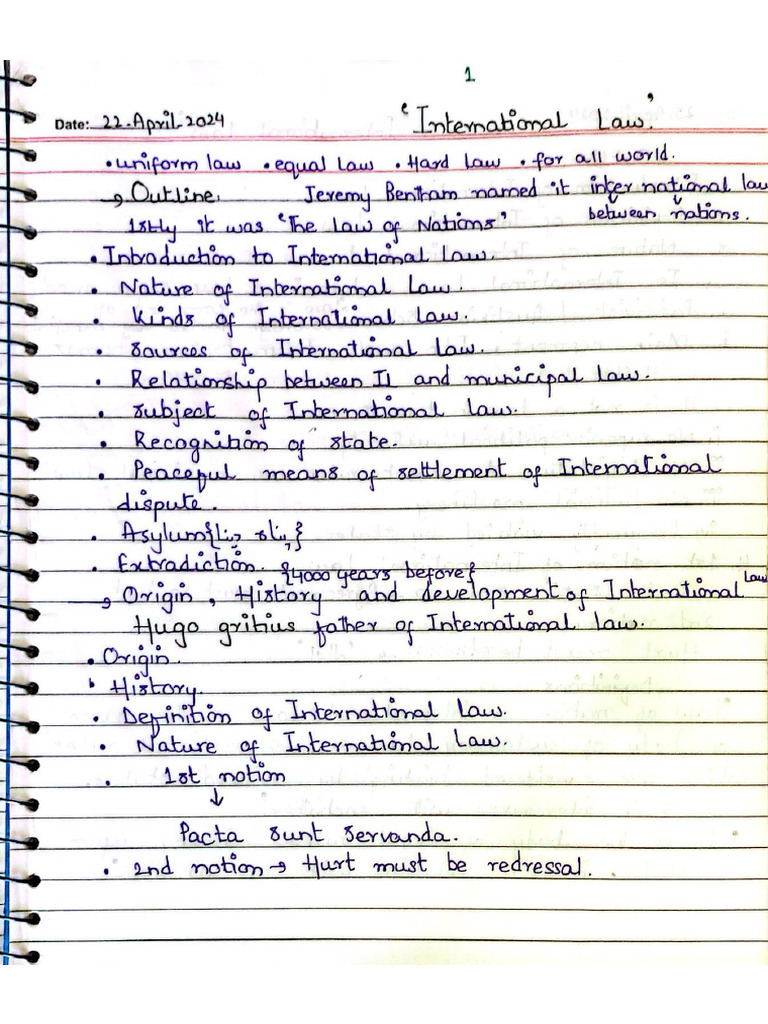 1
Date: 22-April-2024 'International Law.'
•uniform law •equal law •Hard Law •for all world.
→Outline. Jeremy Bentham named it inter national law
1stly it was 'The Law of Nations' between nations.
•Introduction to International Law.
• Nature of International Law.
• Kinds of International Law.
• Sources of International Law.
• Relationship between IL and municipal law.
• Subject of International Law.
• Recognition of state.
• Peaceful means of settlement of International
dispute.
• Asylum{ }
• Extradiction. {4000 years before}
→ Origin, History and development of International Law
Hugo gritius father of International law.
•Origin.
• History.
• Definition of International Law.
• Nature of International Law.
• 1st notion
↓
Pacta sunt servanda.
• 2nd notion → Hurt must be redressal.